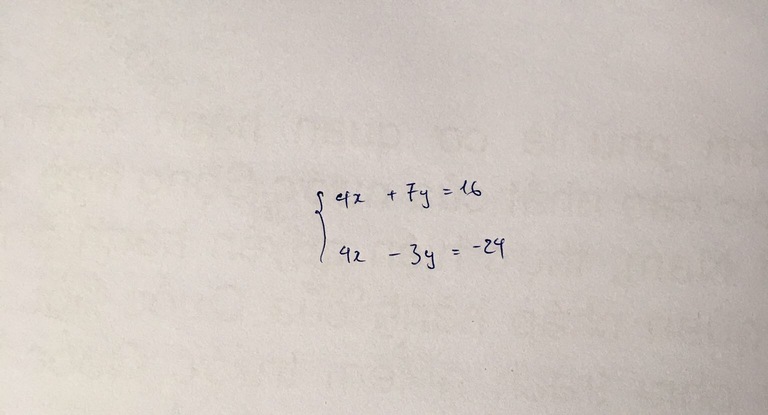 { 4x + 7y = 16
4x - 3y = -24